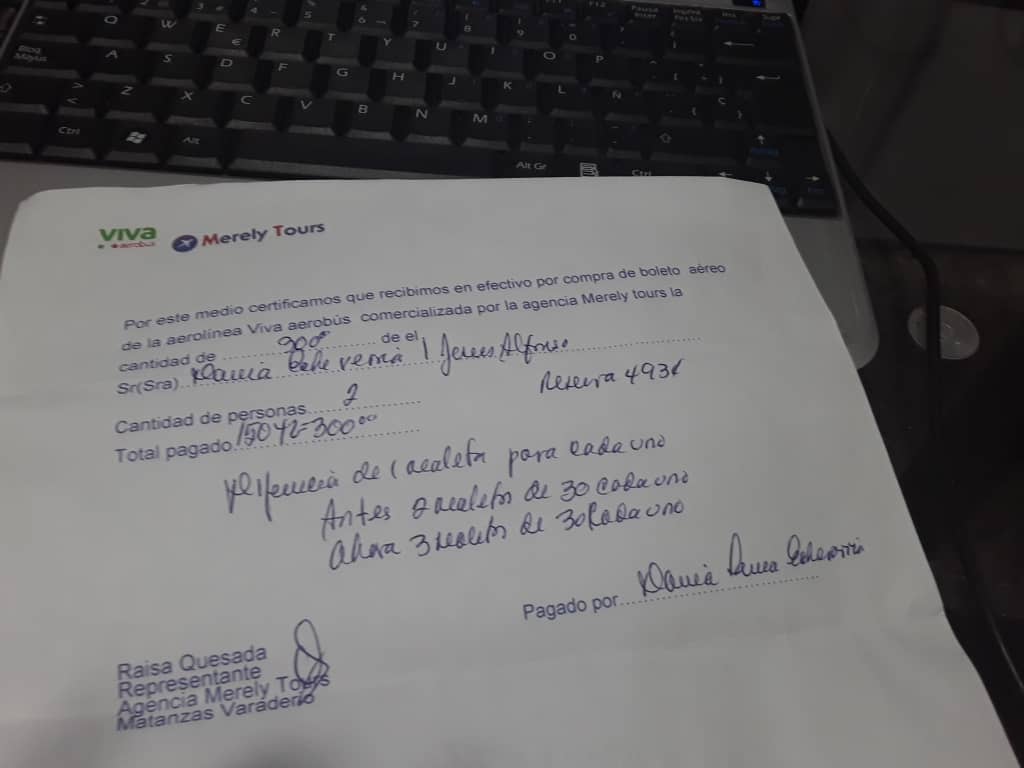 Q W E R T Y U I O P
A S D F G H J K L Ñ
Z X C V B N M
Ctrl Alt Alt Gr Ctrl
viva aerobus Merely Tours
Por este medio certificamos que recibimos en efectivo por compra de boleto aéreo
de la aerolínea Viva aerobús comercializada por la agencia Merely tours la
cantidad de ............ de el
Sr(Sra) Echeverria / Jesus Alfonso
Reserva 493
Cantidad de personas 2
Total pagado 150x2=300⁰⁰
Diferencia de 1 maleta para cada uno
Antes 2 maletas de 30 cada uno
Ahora 3 maletas de 30 Cada uno
Pagado por Echeverria
Raisa Quesada
Representante
Agencia Merely Tours
Matanzas Varadero